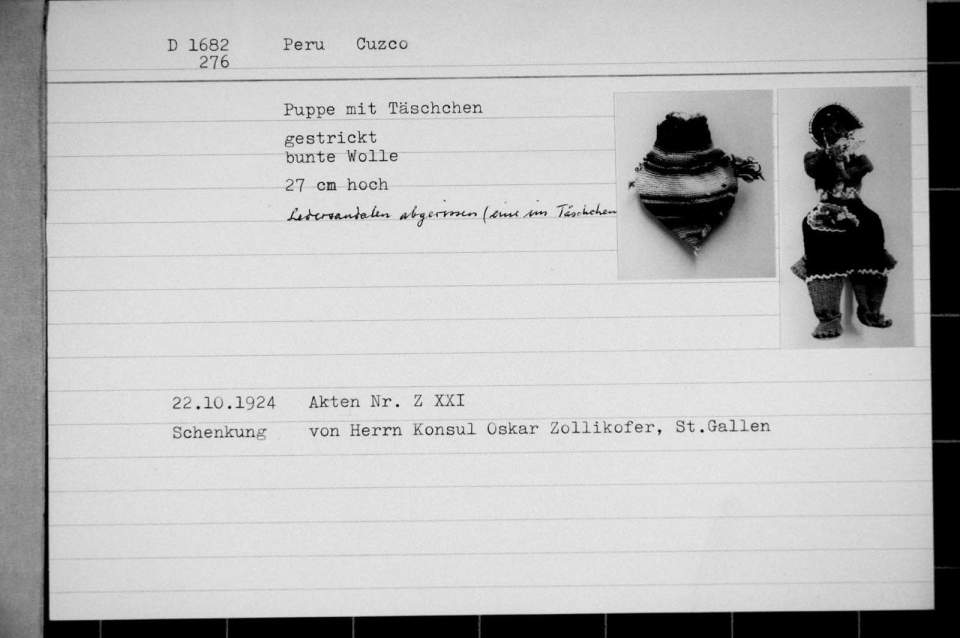 D 1682 Peru Cuzco
276
Puppe mit Täschchen
gestrickt
bunte Wolle
27 cm hoch
Ledersandalen abgerissen (eine im Täschchen
22.10.1924 Akten Nr. Z XXI
Schenkung von Herrn Konsul Oskar Zollikofer, St.Gallen